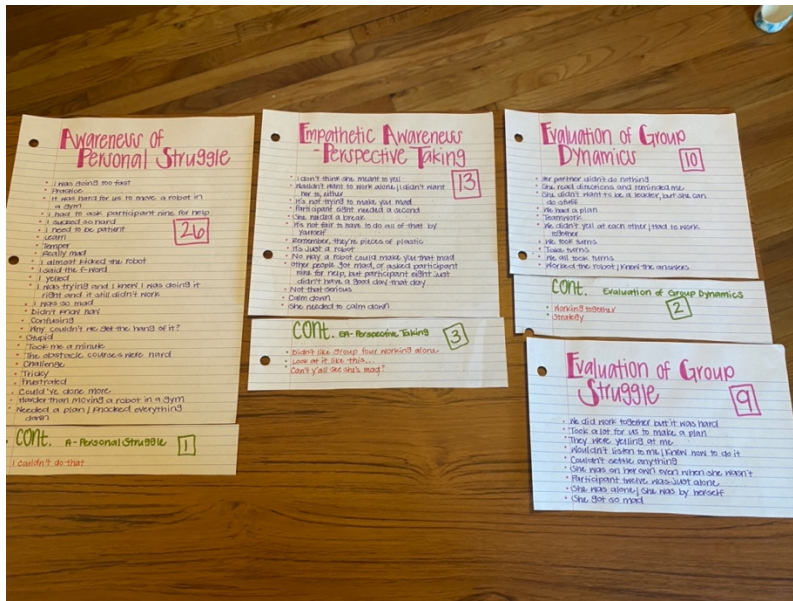 Awareness of
Personal Struggle
• I was going too fast
• Practice
• It was hard for us to move a robot in
a gym
• I had to ask participant nine for help
• I sucked so hard
• I need to be patient
• Learn
• Temper
• Really mad
• I almost kicked the robot
• I said the f-word
• I yelled
• I was trying and I knew I was doing it
right and it still didn't work
• I was so mad
• Didn't know how
• Confusing
• Why couldn't we get the hang of it?
• Stupid
• Took me a minute
• The obstacle courses were hard
• Challenge
• Tricky
• Frustrated
• Could've done more
• Harder than moving a robot in a gym
• Needed a plan / knocked everything
down
26
CONT. A-Personal Struggle 1
• I couldn't do that
Empathetic Awareness
-Perspective Taking
13
• I don't think she meant to yell
• Wouldn't want to work alone, I didn't want
her to, either
• It's not trying to make you mad
• Participant eight needed a second
• She needed a break
• It's not fair to have to do all of that by
yourself
• Remember, they're pieces of plastic
• It's just a robot
• No way a robot could make you that mad
• Other people got mad, or asked participant
nine for help, but participant eight just
didn't have a good day that day
• Not that serious
• Calm down
• She needed to calm down
CONT. EA-Perspective Taking 3
• Didn't like group four working alone
• Look at it like this...
• Can't y'all see she's mad?
Evaluation of Group
Dynamics 10
• Her partner didn't do nothing
• She read directions and reminded me
• She didn't want to be a leader, but she can
do stuff
• We had a plan
• Teamwork
• We didn't yell at each other / had to work
together
• We took turns
• Took turns
• We all took turns
• Worked the robot / knew the answers
CONT. Evaluation of Group Dynamics
2
• Working together
• Strategy
Evaluation of Group
Struggle 9
• We did work together but it was hard
• Took a lot for us to make a plan
• They were yelling at me
• Wouldn't listen to me / knew how to do it
• Couldn't settle anything
• She was on her own even when she wasn't
• Participant twelve was just alone
• She was alone / she was by herself
• She got so mad